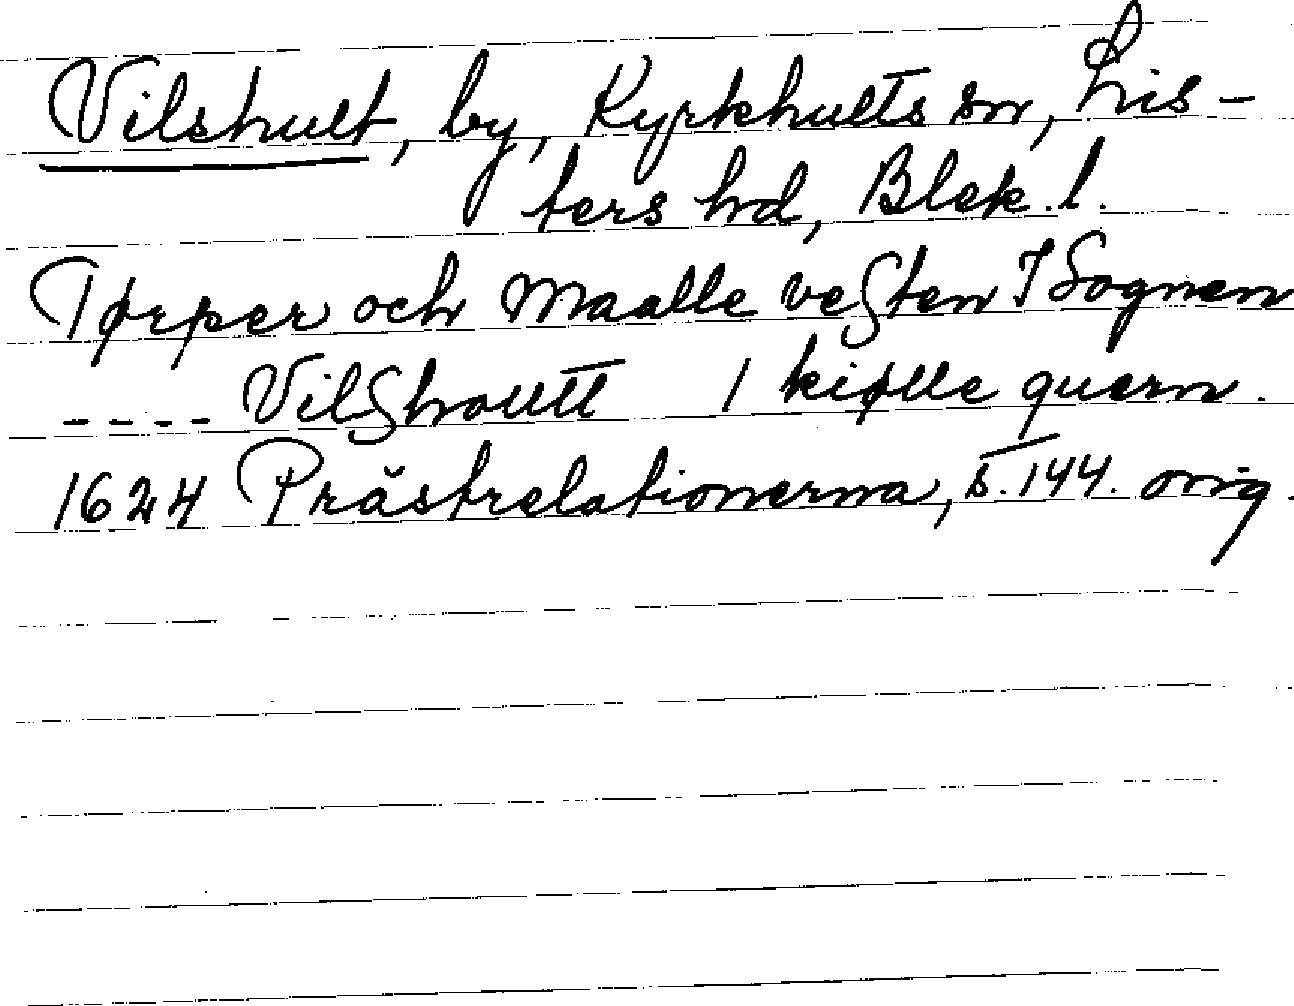 Vilshult, by, Kyrkhults sn, Lis-
ters hd, Blek. l.
Tørper och Maalle vesten I Sognen
---- Vilshoult 1 kiølle quern.
1624 Prästrelationerna, s. 144. orig.